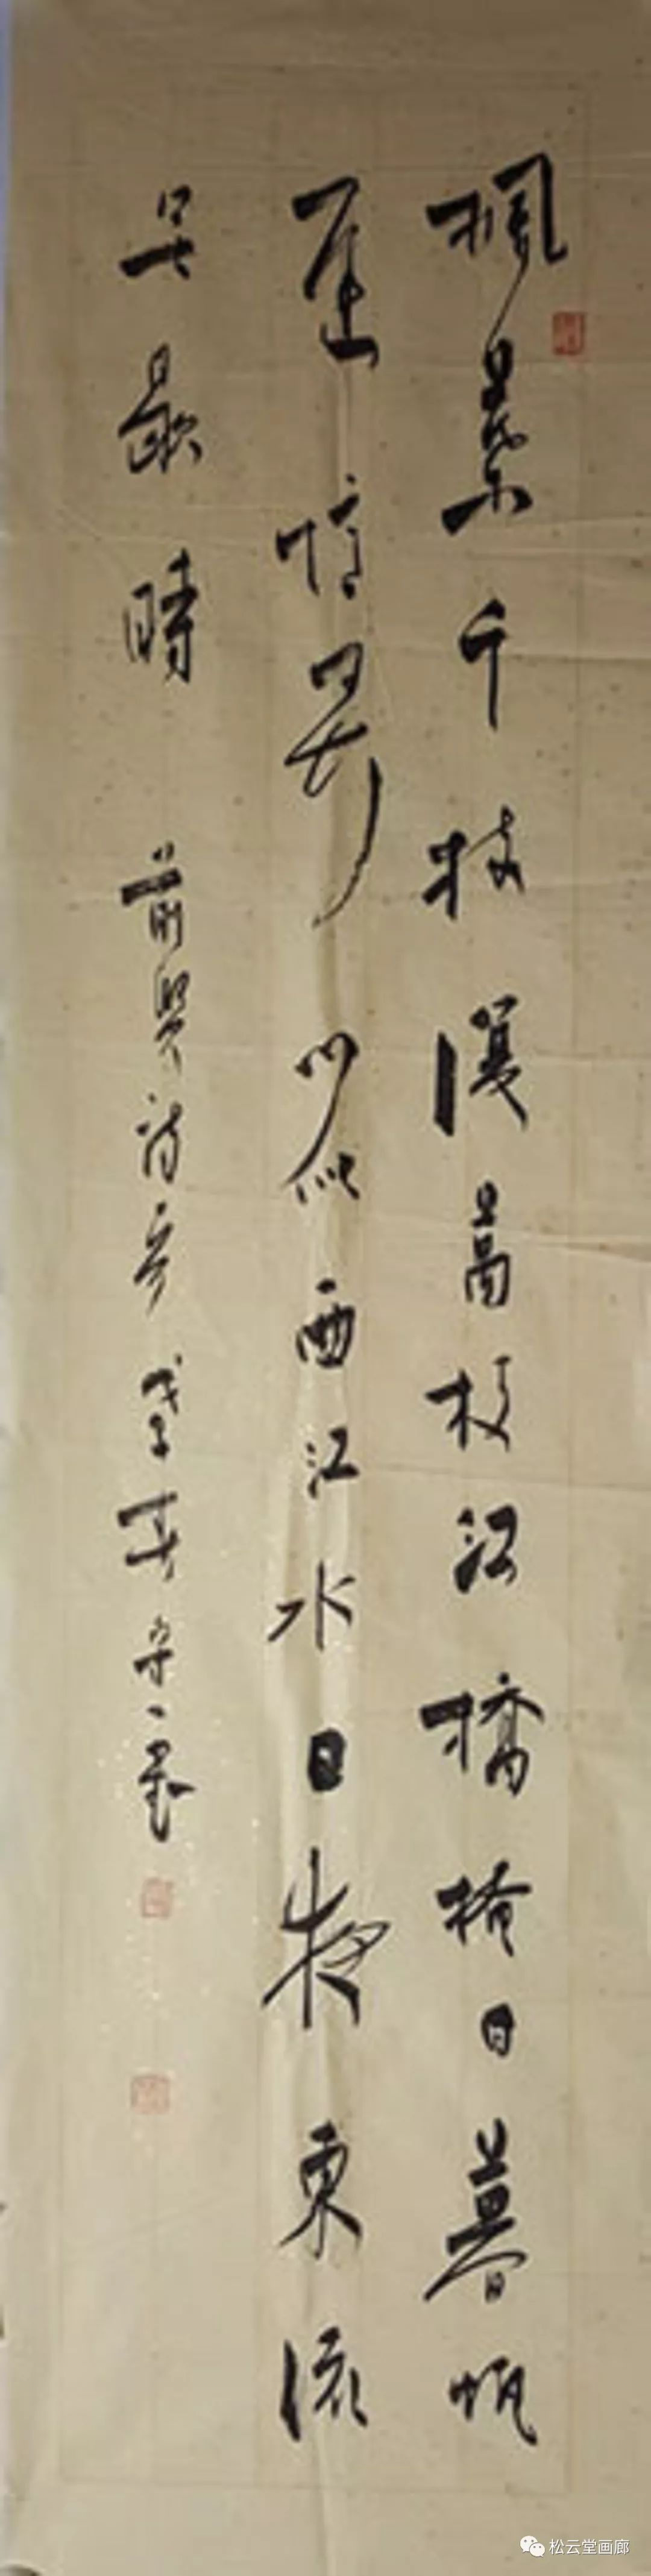 楓葉千枝復萬枝江橋掩日暮帆
遲憶君心似西江水日夜東流
無歇時 前賢詩 戊子
松云堂画廊